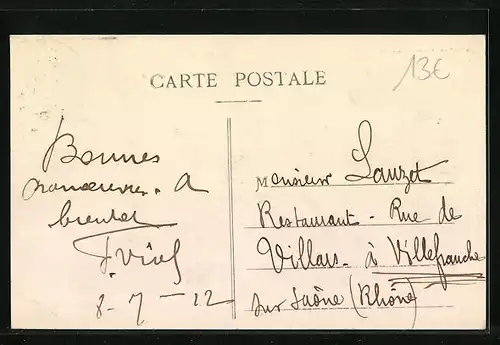 CARTE POSTALE
13€
Bonnes
manoeuvres. A
bientot
8-7-12
Monsieur Lauzet
Restaurant - Rue de
Villars - à Villefranche
sur Saône (Rhône)